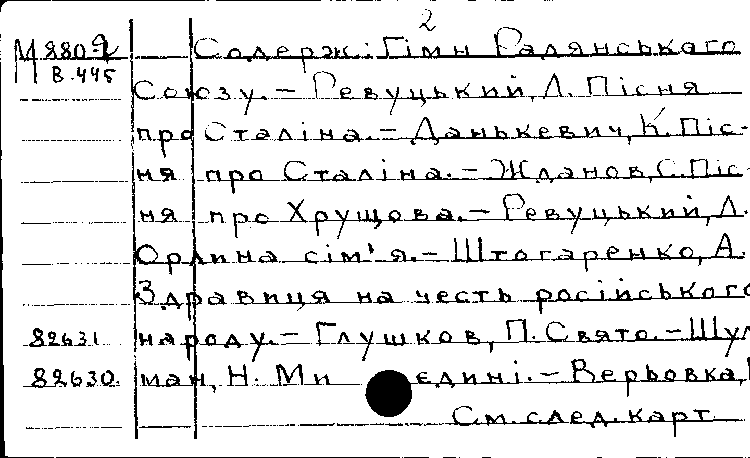 2
М 880-2 Содерж: Гімн Радянського
В.445 Союзу.– Ревуцький, Л. Пісня
про Сталіна.– Данькевич, К. Піс-
ня про Сталіна.– Жданов, С. Піс-
ня про Хрущова.– Ревуцький, Л.
Орлина сім'я.– Штогаренко, А.
Здравиця на честь російського
82631 народу.– Глушков, П. Свято.– Шул
82630. ман, Н. Ми єдині.– Верьовка,
См. след. карт